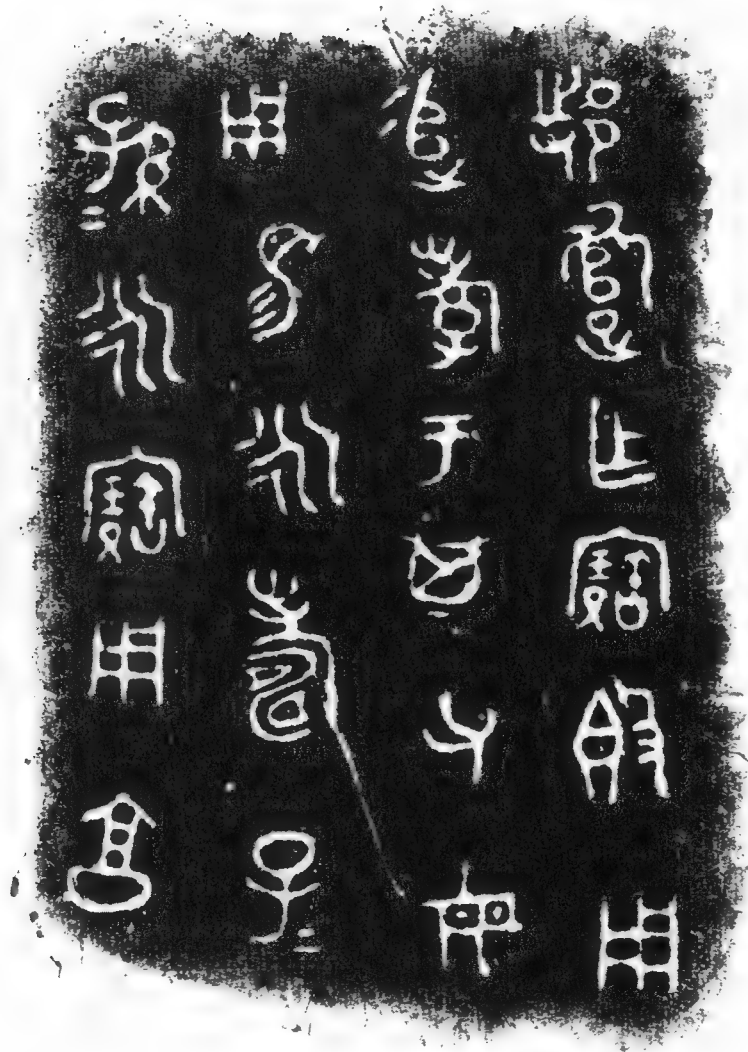 邿遣乍寶𣪘用
追孝于其父母
用易永壽子=
孫=永寶用享